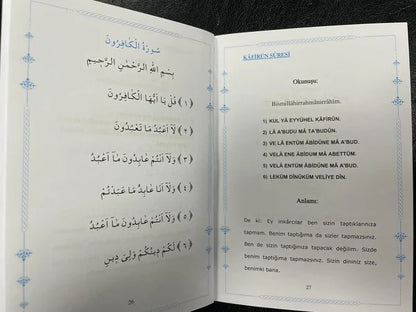 سُورَةُ الْكَافِرُونَ
بِسْمِ اللّٰهِ الرَّحْمٰنِ الرَّحِيمِ
﴿١﴾ قُلْ يَا أَيُّهَا الْكَافِرُونَ
﴿٢﴾ لَا أَعْبُدُ مَا تَعْبُدُونَ
﴿٣﴾ وَلَا أَنْتُمْ عَابِدُونَ مَا أَعْبُدُ
﴿٤﴾ وَلَا أَنَا عَابِدٌ مَا عَبَدْتُمْ
﴿٥﴾ وَلَا أَنْتُمْ عَابِدُونَ مَا أَعْبُدُ
﴿٦﴾ لَكُمْ دِينُكُمْ وَلِيَ دِينِ
26
KÂFİRÛN SÛRESİ
Okunuşu:
Bismillâhirrahmânirrahîm.
1) KUL YÂ EYYÜHEL KÂFİRÛN.
2) LÂ A'BUDU MÂ TA'BUDÛN.
3) VE LÂ ENTÜM ÂBİDÛNE MÂ A'BUD.
4) VELÂ ENE ÂBİDUM MÂ ABETTÜM.
5) VELÂ ENTÜM ÂBİDÛNE MÂ A'BUD.
6) LEKÜM DÎNÜKÜM VELİYE DÎN.
Anlamı:
De ki: Ey inkârcılar ben sizin taptıklarınıza
tapmam. Benim taptığıma da sizler tapmazsınız.
Ben de sizin taptığınıza tapacak değilim. Sizde
benim taptığıma tapmazsınız. Sizin dininiz size,
benimki bana.
27